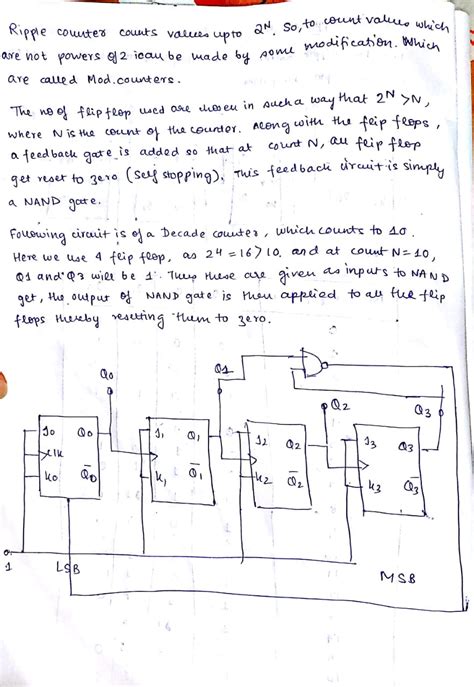 Ripple counter counts values upto 2ᴺ. So, to count values which
are not powers of 2 ican be made by some modification. Which
are called Mod.counters.
The no of flip flop used are chosen in such a way that 2ᴺ >N,
where N is the count of the counter. Along with the flip flops,
a feedback gate is added so that at count N, all flip flop
get reset to zero (self stopping). This feedback circuit is simply
a NAND gate.
Following circuit is of a Decade counter, which counts to 10.
Here we use 4 flip flop, as 2⁴ = 16 > 10. and at count N = 10,
Q1 and Q3 will be 1. Thus these are given as inputs to NAND
get, the output of NAND gate is then applied to all the flip
flops thereby resetting them to zero.
Q0 Q1 Q2 Q3
J0 Q0 J1 Q1 J2 Q2 J3 Q3
clk
K0 Q̅0 K1 Q̅1 K2 Q̅2 K3 Q̅3
1 LSB MSB